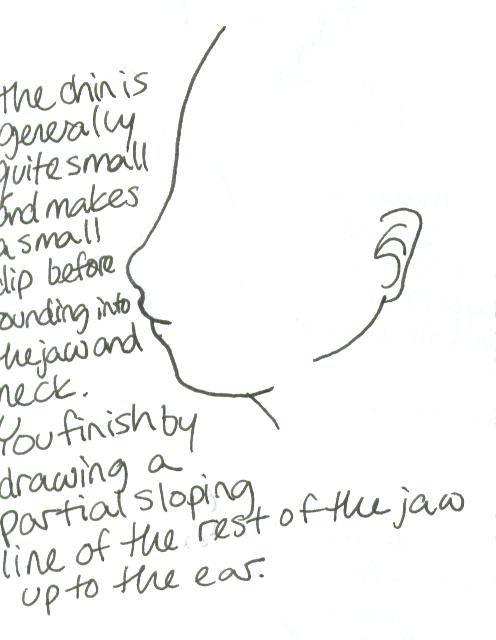 the chin is
generally
quite small
and makes
a small
dip before
ounding into
the jaw and
neck.
You finish by
drawing a
partial sloping
line of the rest of the jaw
up to the ear.